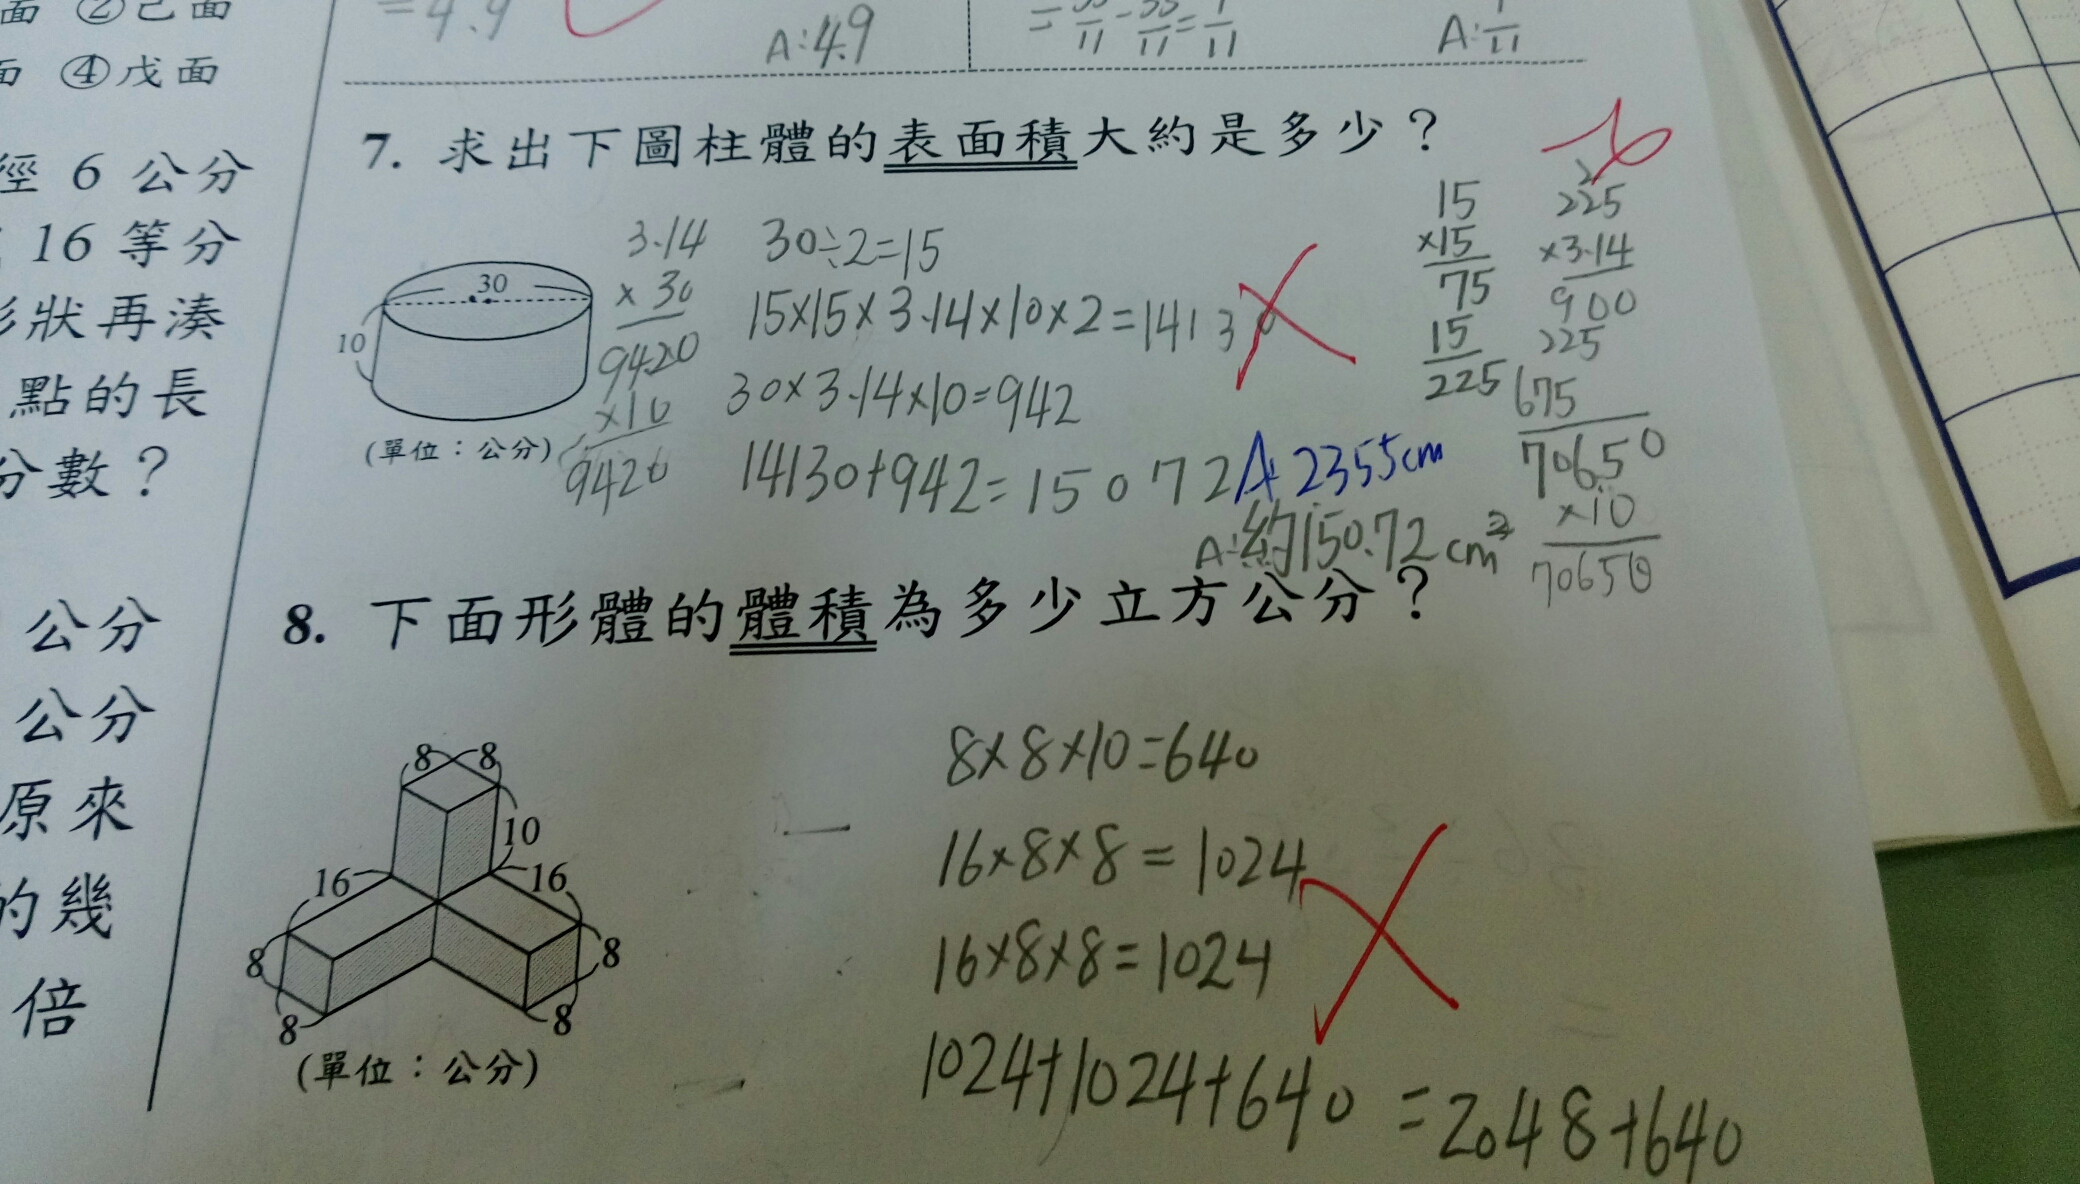 面 ②己面
=4.9
A:4.9
A:
面 ④戊面
7. 求出下圖柱體的表面積大約是多少？
徑 6 公分
16 等分
形狀再湊
點的長
分數？
30
10
(單位：公分)
3.14
×30
9420
×10
9420
30÷2=15
15×15×3.14×10×2=14130
30×3.14×10=942
14130+942=15072
A: 2355cm
A:約150.72cm²
15
×15
75
15
225
2
225
×3.14
900
225
675
70650
×10
70650
8. 下面形體的體積為多少立方公分？
公分
公分
原來
的幾
倍
8 8
10
16 16
8 8
8 8
(單位：公分)
8×8×10=640
16×8×8=1024
16×8×8=1024
1024+1024+640=2048+640